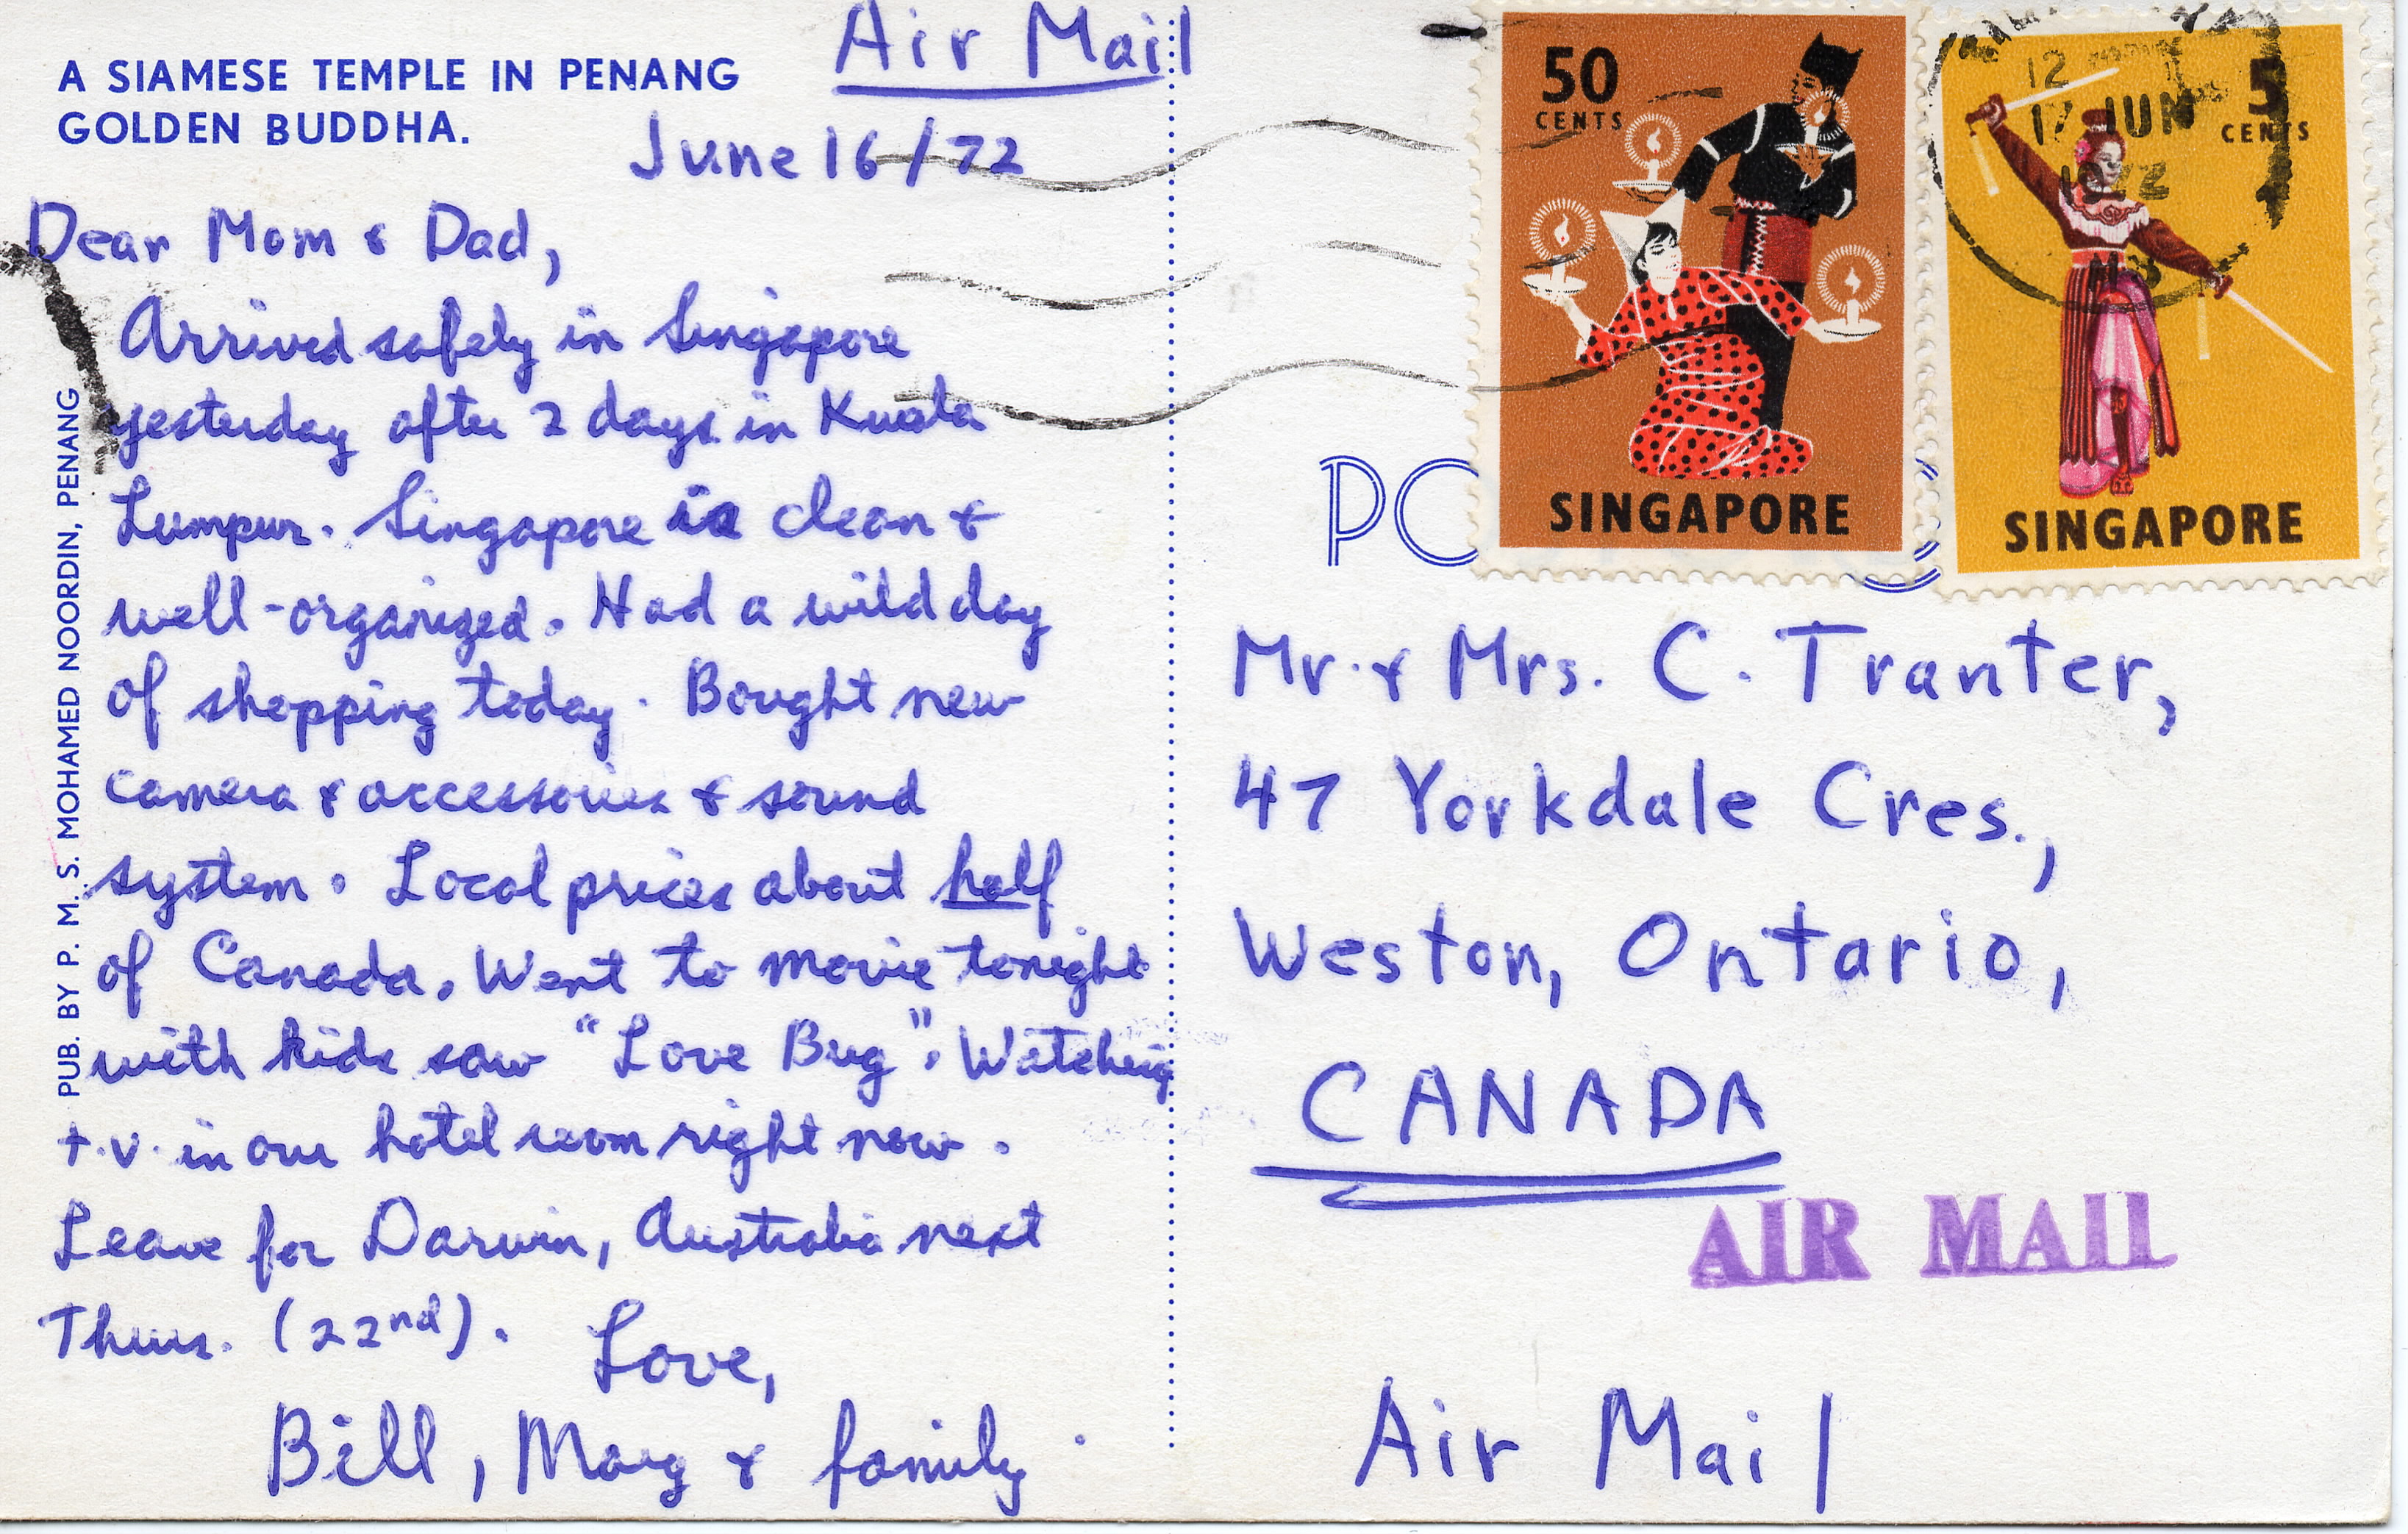 A SIAMESE TEMPLE IN PENANG
GOLDEN BUDDHA.
Air Mail
June 16/72
Dear Mom & Dad,
Arrived safely in Singapore
yesterday after 2 days in Kuala
Lumpur. Singapore is clean &
well-organized. Had a wild day
of shopping today. Bought new
camera & accessories & sound
system. Local prices about half
of Canada. Went to movie tonight
with kids saw "Love Bug". Watching
t.v. in our hotel room right now.
Leave for Darwin, Australia next
Thurs. (22nd).
Love,
Bill, Marg & family.
PUB. BY P. M. S. MOHAMED NOORDIN, PENANG
50
CENTS
SINGAPORE
5
CENTS
SINGAPORE
12
17 JUN
1972
Mr. & Mrs. C. Tranter,
47 Yorkdale Cres.,
Weston, Ontario,
CANADA
AIR MAIL
Air Mail